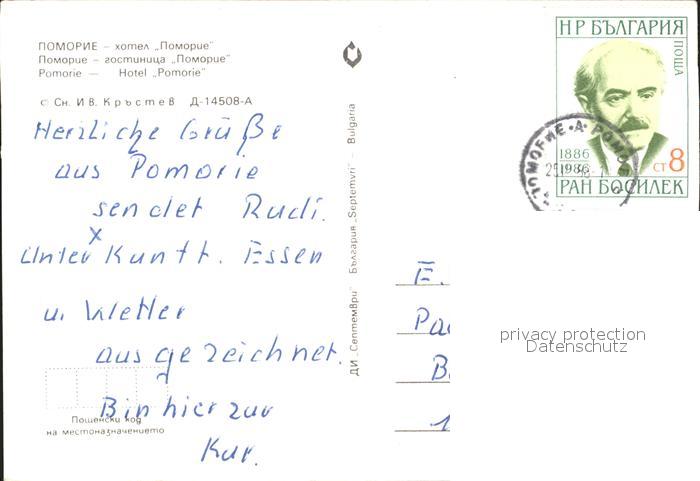 ПОМОРИЕ – хотел „Поморие"
Поморие – гостиница „Поморие"
Pomorie — Hotel „Pomorie"
© Сн. Ив. Кръстев Д-14508-А
Herzliche Grüße
aus Pomorie
sendet Rudi.
x
Unterkunft. Essen
u. Wetter
ausgezeichnet.
Bin hier zur
Kur.
Пощенски код
на местоназначението
ДИ „Септември" – България „Septemvri" – Bulgaria
НР БЪЛГАРИЯ
ПОЩА
1886
1986
СТ 8
РАН БОСИЛЕК
ПОМОРИЕ · А ·
E.
Pa
B
1
privacy protection
Datenschutz